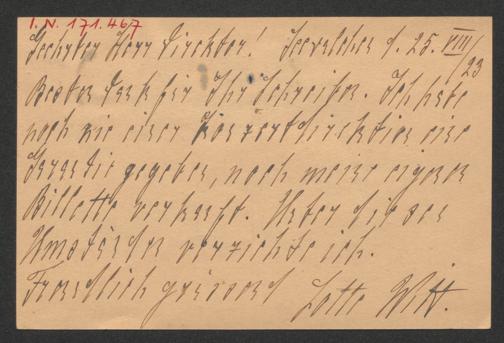 I.N. 171.467
Geehrter Herr Direktor! Seewalchen d. 25. VIII/23
Besten Dank für Ihr Schreiben. Ich habe
noch nie einer Konzertdirektion eine
Garantie gegeben, noch meine eigenen
Billette verkauft. Unter diesen
Umständen verzichte ich.
Freundlich grüssend Lotte Witt.